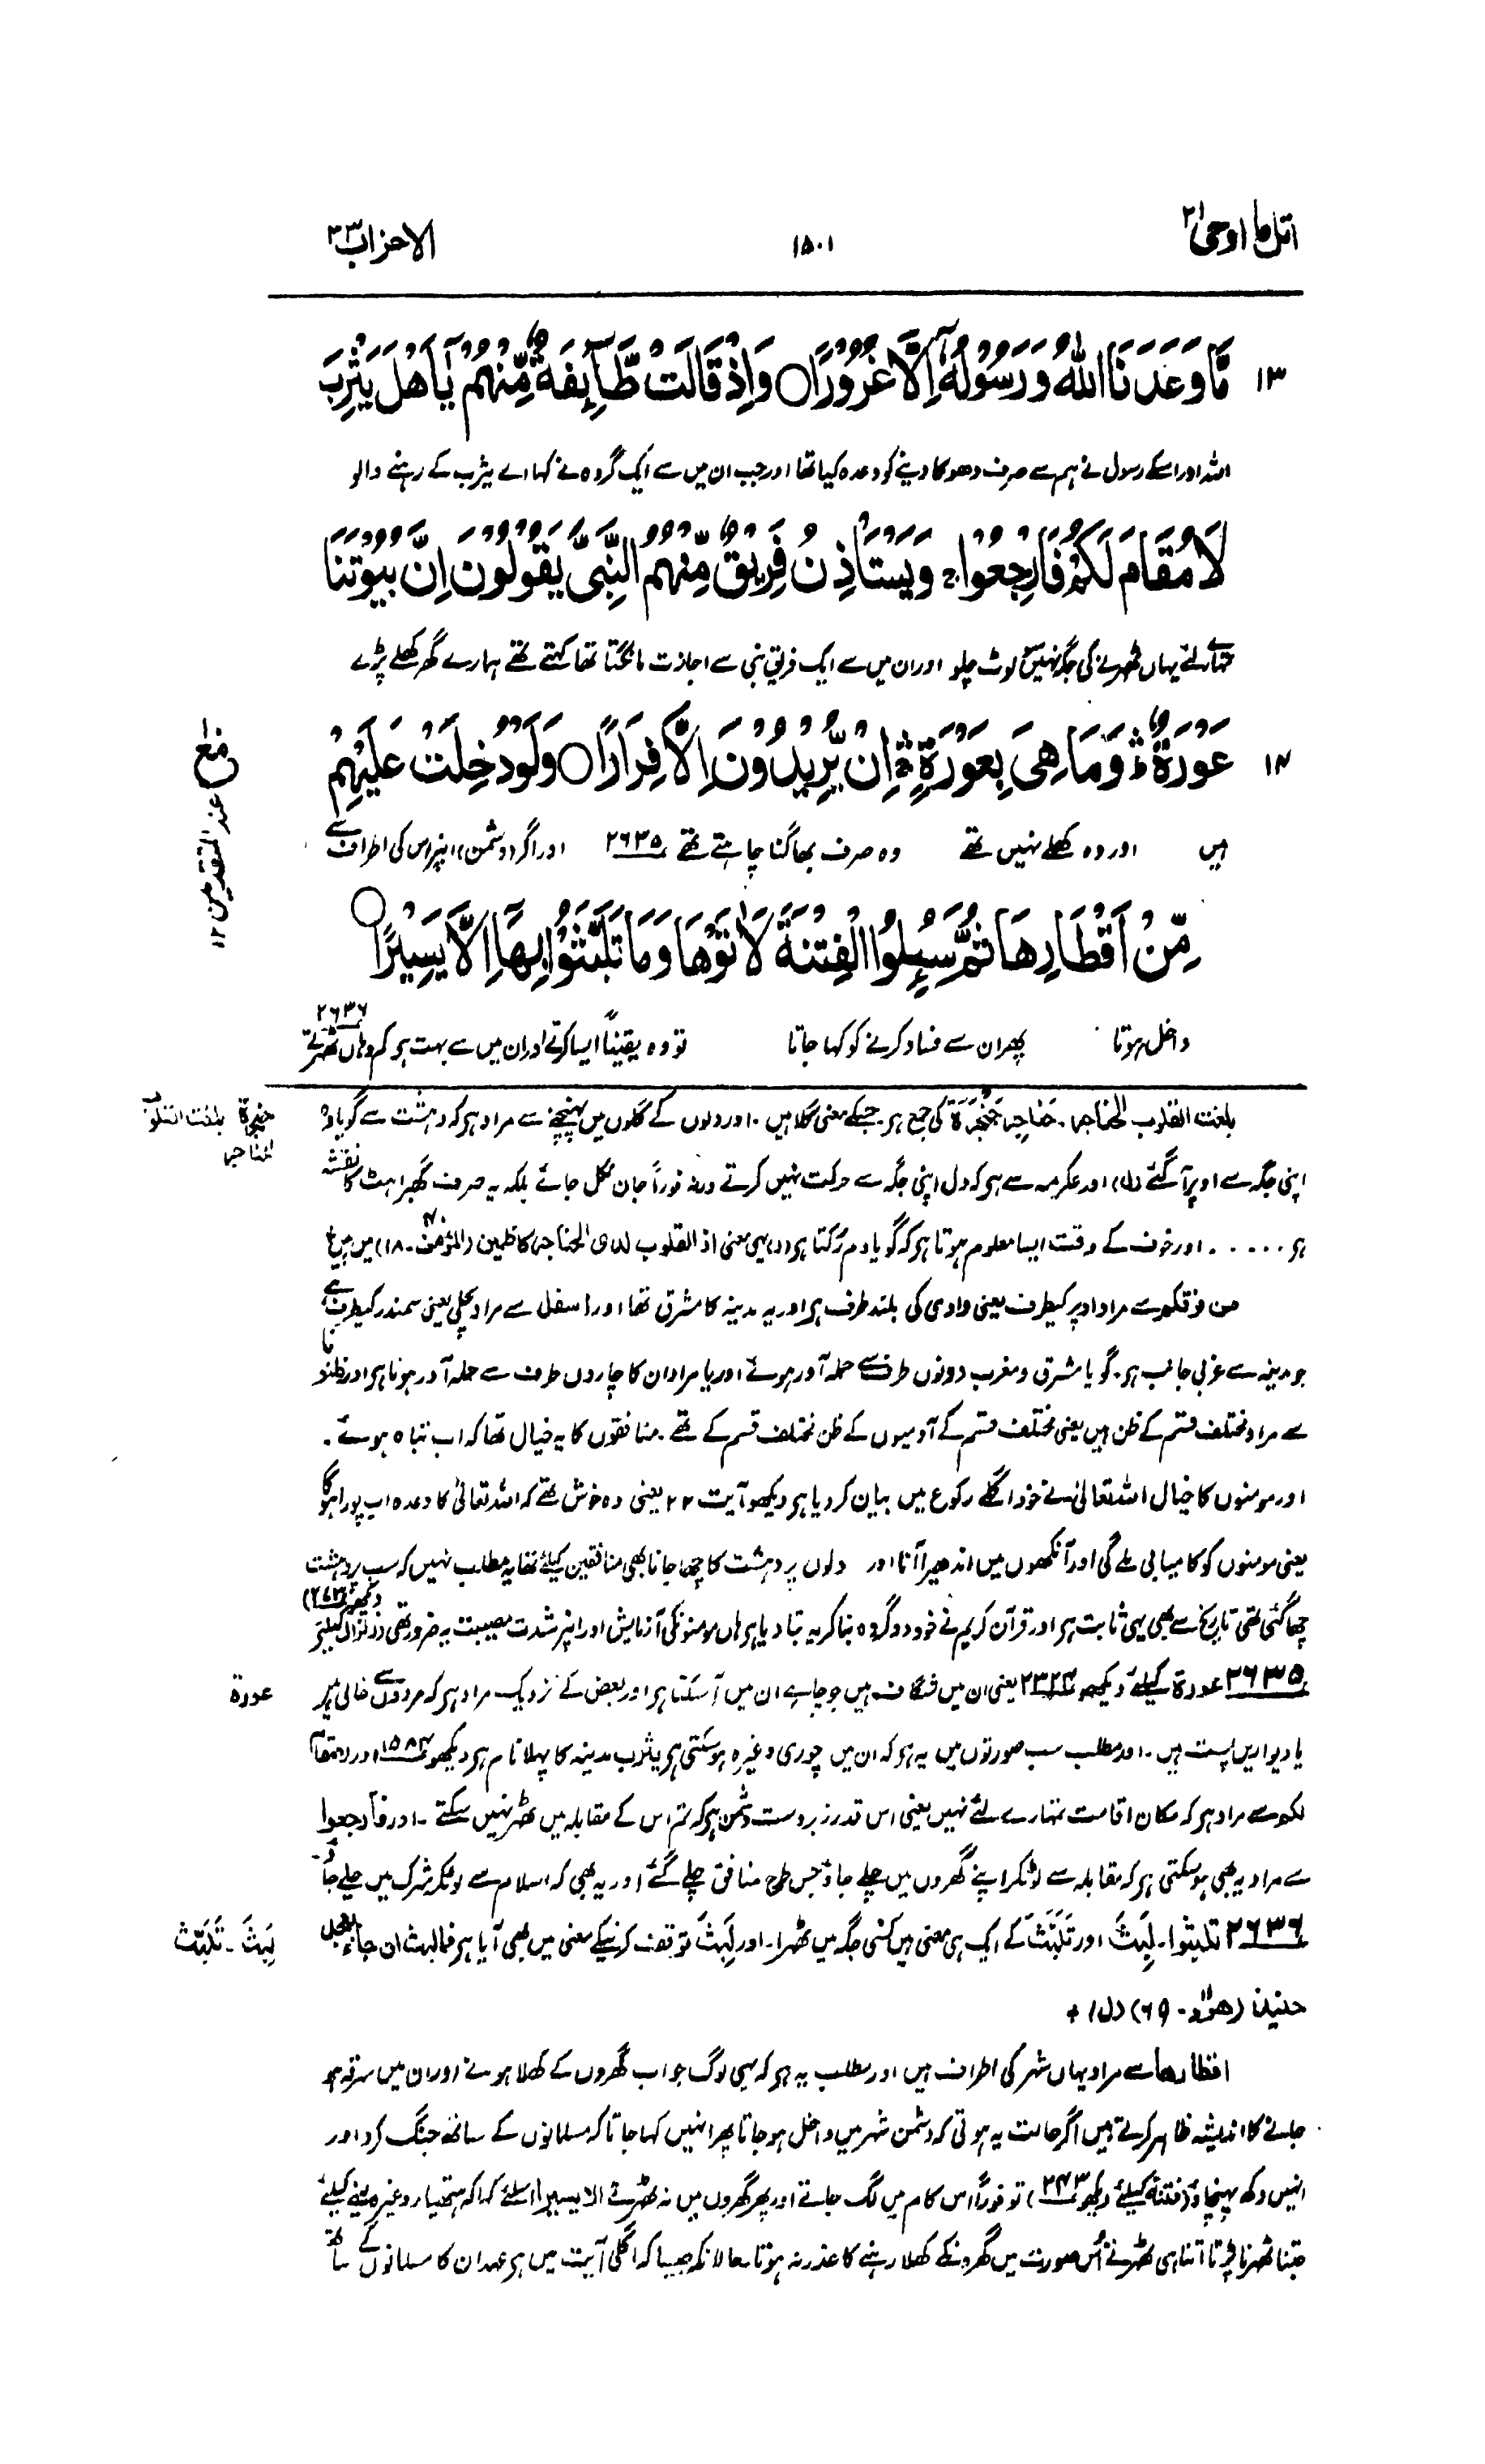 اتل ما اوحی ۲۱
۱۵۰۱
الاحزاب ۳۳
۱۳
مَّا وَعَدَنَا اللّٰهُ وَرَسُوْلُهٗۤ اِلَّا غُرُوْرًا ○ وَاِذْ قَالَتْ طَّآئِفَةٌ مِّنْهُمْ يٰۤاَهْلَ يَثْرِبَ
اللہ اور اسکے رسول نے ہم سے صرف دھوکا دینے کو وعدہ کیا تھا اور جب ان میں سے ایک گروہ نے کہا اے یثرب کے رہنے والو
لَا مُقَامَ لَكُمْ فَارْجِعُوْا ۚ وَيَسْتَاْذِنُ فَرِيْقٌ مِّنْهُمُ النَّبِىَّ يَقُوْلُوْنَ اِنَّ بُيُوْتَنَا
تمہارے لئے یہاں ٹھہرنے کی جگہ نہیں لوٹ چلو اور ان میں سے ایک فریق نبی سے اجازت مانگتا تھا کہتے تھے ہمارے گھر کھلے پڑے
۱۴
عَوْرَةٌ ۛ وَمَا هِىَ بِعَوْرَةٍ ۛ اِنْ يُّرِيْدُوْنَ اِلَّا فِرَارًا ○ وَلَوْ دُخِلَتْ عَلَيْهِمْ
ہیں اور وہ کھلے نہیں تھے وہ صرف بھاگنا چاہتے تھے ۲۶۳۵ اور اگر (دشمن) انپر اس کی اطراف سے
مع
عند المتقدمین ۱۲
مِّنْ اَقْطَارِهَا ثُمَّ سُئِلُوا الْفِتْنَةَ لَاٰتَوْهَا وَمَا تَلَبَّثُوْا بِهَاۤ اِلَّا يَسِيْرًا ○
داخل ہوتا پھر ان سے فساد کرنے کو کہا جاتا تو وہ یقیناً ایسا کرتے اور ان میں سے بہت ہی کم وہاں ٹھہرتے ۲۶۳۶
حنجرة بلغت القلوب
الحناجر
بلغت القلوب الحناجر۔ حَنَاجِر حَنْجَرَة کی جمع ہے۔ جسکے معنی گلا ہیں۔ اور دلوں کے گلوں میں پہنچنے سے مراد ہے کہ دہشت سے گویا وہ
اپنی جگہ سے اوپر آگئے (ل) اور عکرمہ سے ہے کہ دل اپنی جگہ سے حرکت نہیں کرتے ورنہ فوراً جان نکل جائے بلکہ یہ صرف گھبراہٹ کا نقشہ
ہے ..... اور خوف کے وقت ایسا معلوم ہوتا ہے کہ گویا دم رُکتا ہے (ر) یہی معنی اذ القلوب لدی الحناجر کاظمین (المؤمن ۴۰۔۱۸) میں ہیں
من فوقکم سے مراد اوپر کیطرف یعنی وادی کی بلند طرف ہے اور یہ مدینہ کا مشرق تھا اور اسفل سے مراد نچلی یعنی سمندر کیطرف ہے
جو مدینہ سے غربی جانب ہے۔ گویا مشرق و مغرب دونوں طرف سے حملہ آور ہوئے اور یا مراد ان کا چاروں طرف سے حملہ آور ہونا ہے اور ظنونا
سے مراد مختلف قسم کے ظن ہیں یعنی مختلف قسم کے آدمیوں کے ظن مختلف قسم کے تھے۔ منافقوں کا یہ خیال تھا کہ اب تباہ ہوئے۔
اور مومنوں کا خیال اللہ تعالیٰ نے خود اگلے رکوع میں بیان کر دیا ہے دیکھو آیت ۲۲ یعنی وہ خوش تھے کہ اللہ تعالیٰ کا وعدہ اب پورا ہوگا
یعنی مومنوں کو کامیابی ملے گی اور آنکھوں میں اندھیرا آنا اور دلوں پر دہشت کا چھا جانا بھی منافقین کیلئے تھا یہ مطلب نہیں کہ سب پر دہشت
چھا گئی تھی تاریخ سے بھی یہی ثابت ہے اور قرآن کریم نے خود دو گروہ بنا کر یہ بتا دیا ہے ہاں مومنونکی آزمایش اور انپر شدت مصیبت یہ ضرور تھی (زلزال کیلئے دیکھو
۲۶۳۵ عورة کیلئے دیکھو ۲۳۲۴ یعنی ان میں شگاف ہیں جو چاہے ان میں آ سکتا ہے اور بعض کے نزدیک مراد ہے کہ مردوں سے خالی ہیں
عورة
یا دیواریں پست ہیں۔ اور مطلب سب صورتوں میں یہ ہے کہ ان میں چوری وغیرہ ہو سکتی ہے یثرب مدینہ کا پہلا نام ہے دیکھو ۱۵۸۴ اور لامقام
لکم سے مراد ہے کہ مکان اقامت تمہارے لئے نہیں یعنی اس قدر زبردست دشمن ہے کہ تم اس کے مقابلہ میں ٹھہر نہیں سکتے۔ اور فارجعوا
سے مراد یہ بھی ہو سکتی ہے کہ مقابلہ سے لوٹکر اپنے گھروں میں چلے جاؤ جس طرح منافق چلے گئے اور یہ بھی کہ اسلام سے لوٹکر شرک میں چلے جاؤ۔
۲۶۳۶ تلبثوا۔ لَبِثَ اور تَلَبَّثَ کے ایک ہی معنی ہیں کسی جگہ میں ٹھہرا۔ اور لَبِثَ توقف کرنیکے معنی میں بھی آیا ہے فما لبث ان جاء بعجل
لَبِثَ۔ تَلَبَّثَ
حنیذ (ھود ۱۱۔ ۶۹) (ل) +
اقطارھا سے مراد یہاں شہر کی اطراف ہیں اور مطلب یہ ہے کہ یہی لوگ جو اب گھروں کے کھلا ہونے اور ان میں سرقہ ہو
جانے کا اندیشہ ظاہر کرتے ہیں اگر حالت یہ ہوتی کہ دشمن شہر میں داخل ہو جاتا پھر انہیں کہا جاتا کہ مسلمانوں کے ساتھ جنگ کرو اور
انہیں دکھ پہنچاؤ (فتنة کیلئے دیکھو ۲۴۳) تو فوراً اس کام میں لگ جاتے اور پھر گھروں میں نہ ٹھہرتے الا یسیرا اسلئے کہا کہ ہتھیار وغیرہ لینے کیلئے
جتنا ٹھہرنا پڑتا اتنا ہی ٹھہرتے اُس صورت میں گھرونکے کھلا رہنے کا عذر نہ ہوتا حالانکہ جیسا کہ اگلی آیت میں ہے عہد ان کا مسلمانوں کے ساتھ